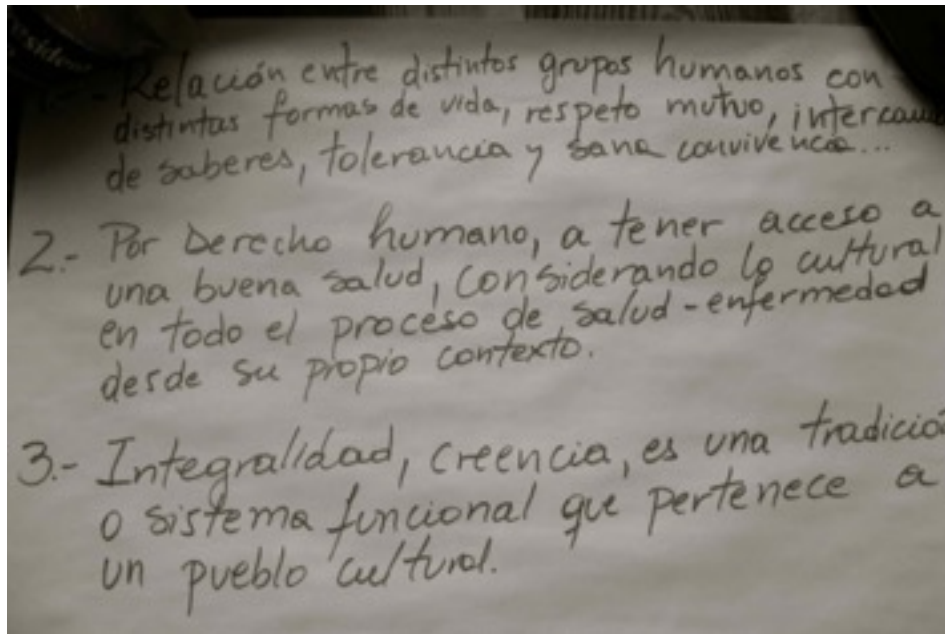 1.- Relación entre distintos grupos humanos con
distintas formas de vida, respeto mutuo, intercam
de saberes, tolerancia y sana convivencia...
2.- Por Derecho humano, a tener acceso a
una buena salud, considerando lo cultural
en todo el proceso de salud-enfermedad
desde su propio contexto.
3.- Integralidad, creencia, es una tradició
o sistema funcional que pertenece a
un pueblo cultural.